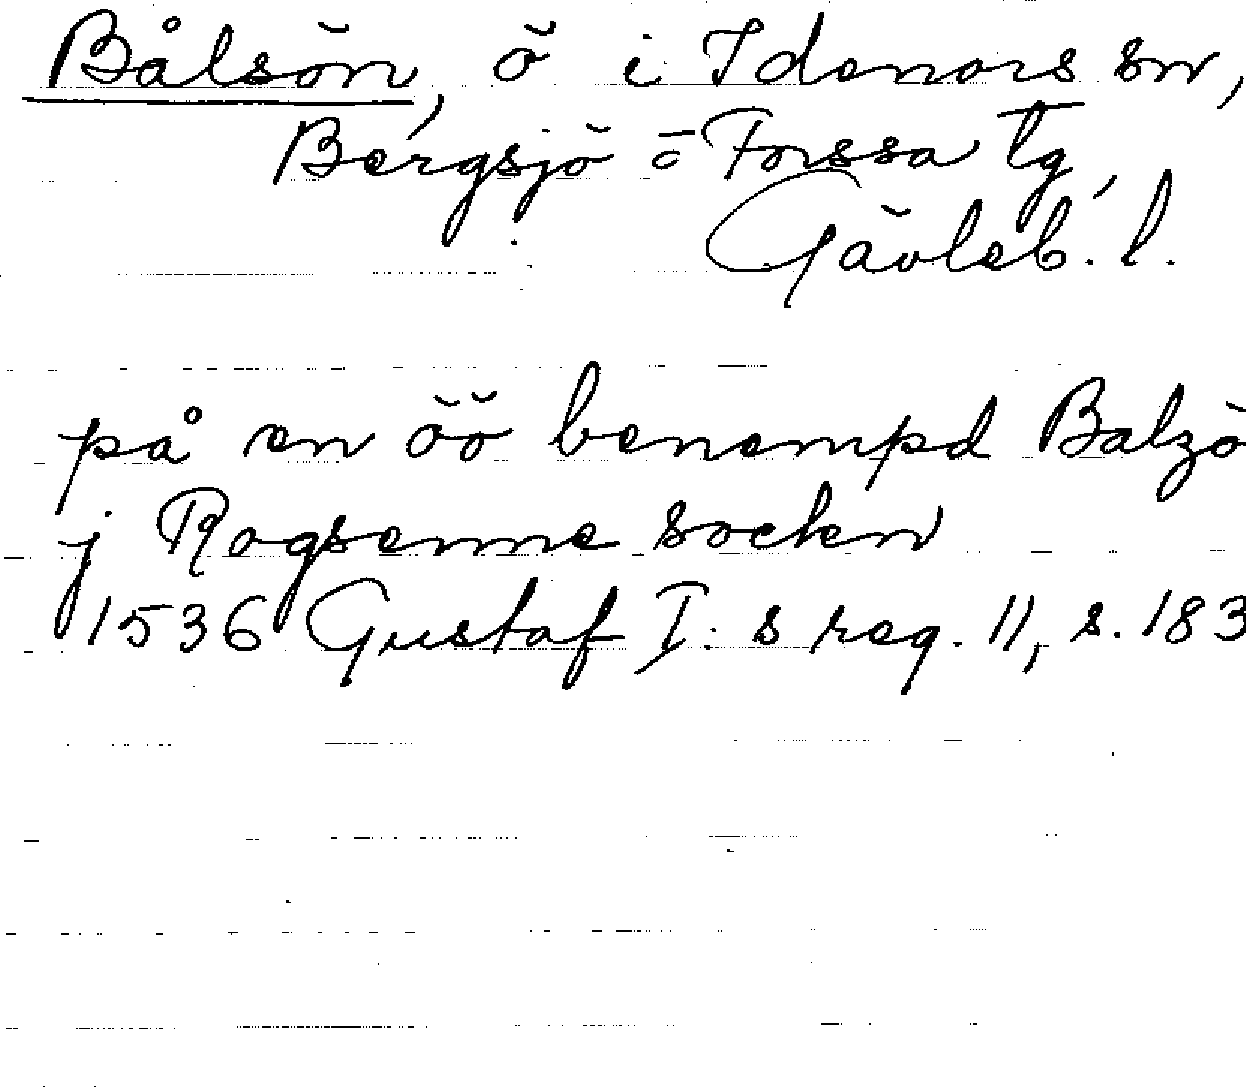 Bålsön, ö i Idenors sn,
Bergsjö o Forssa tg,
Gävleb. l.
på en öö benempd Balzö
j Rogsenne socken
1536 Gustaf I:s reg. 11, s. 183